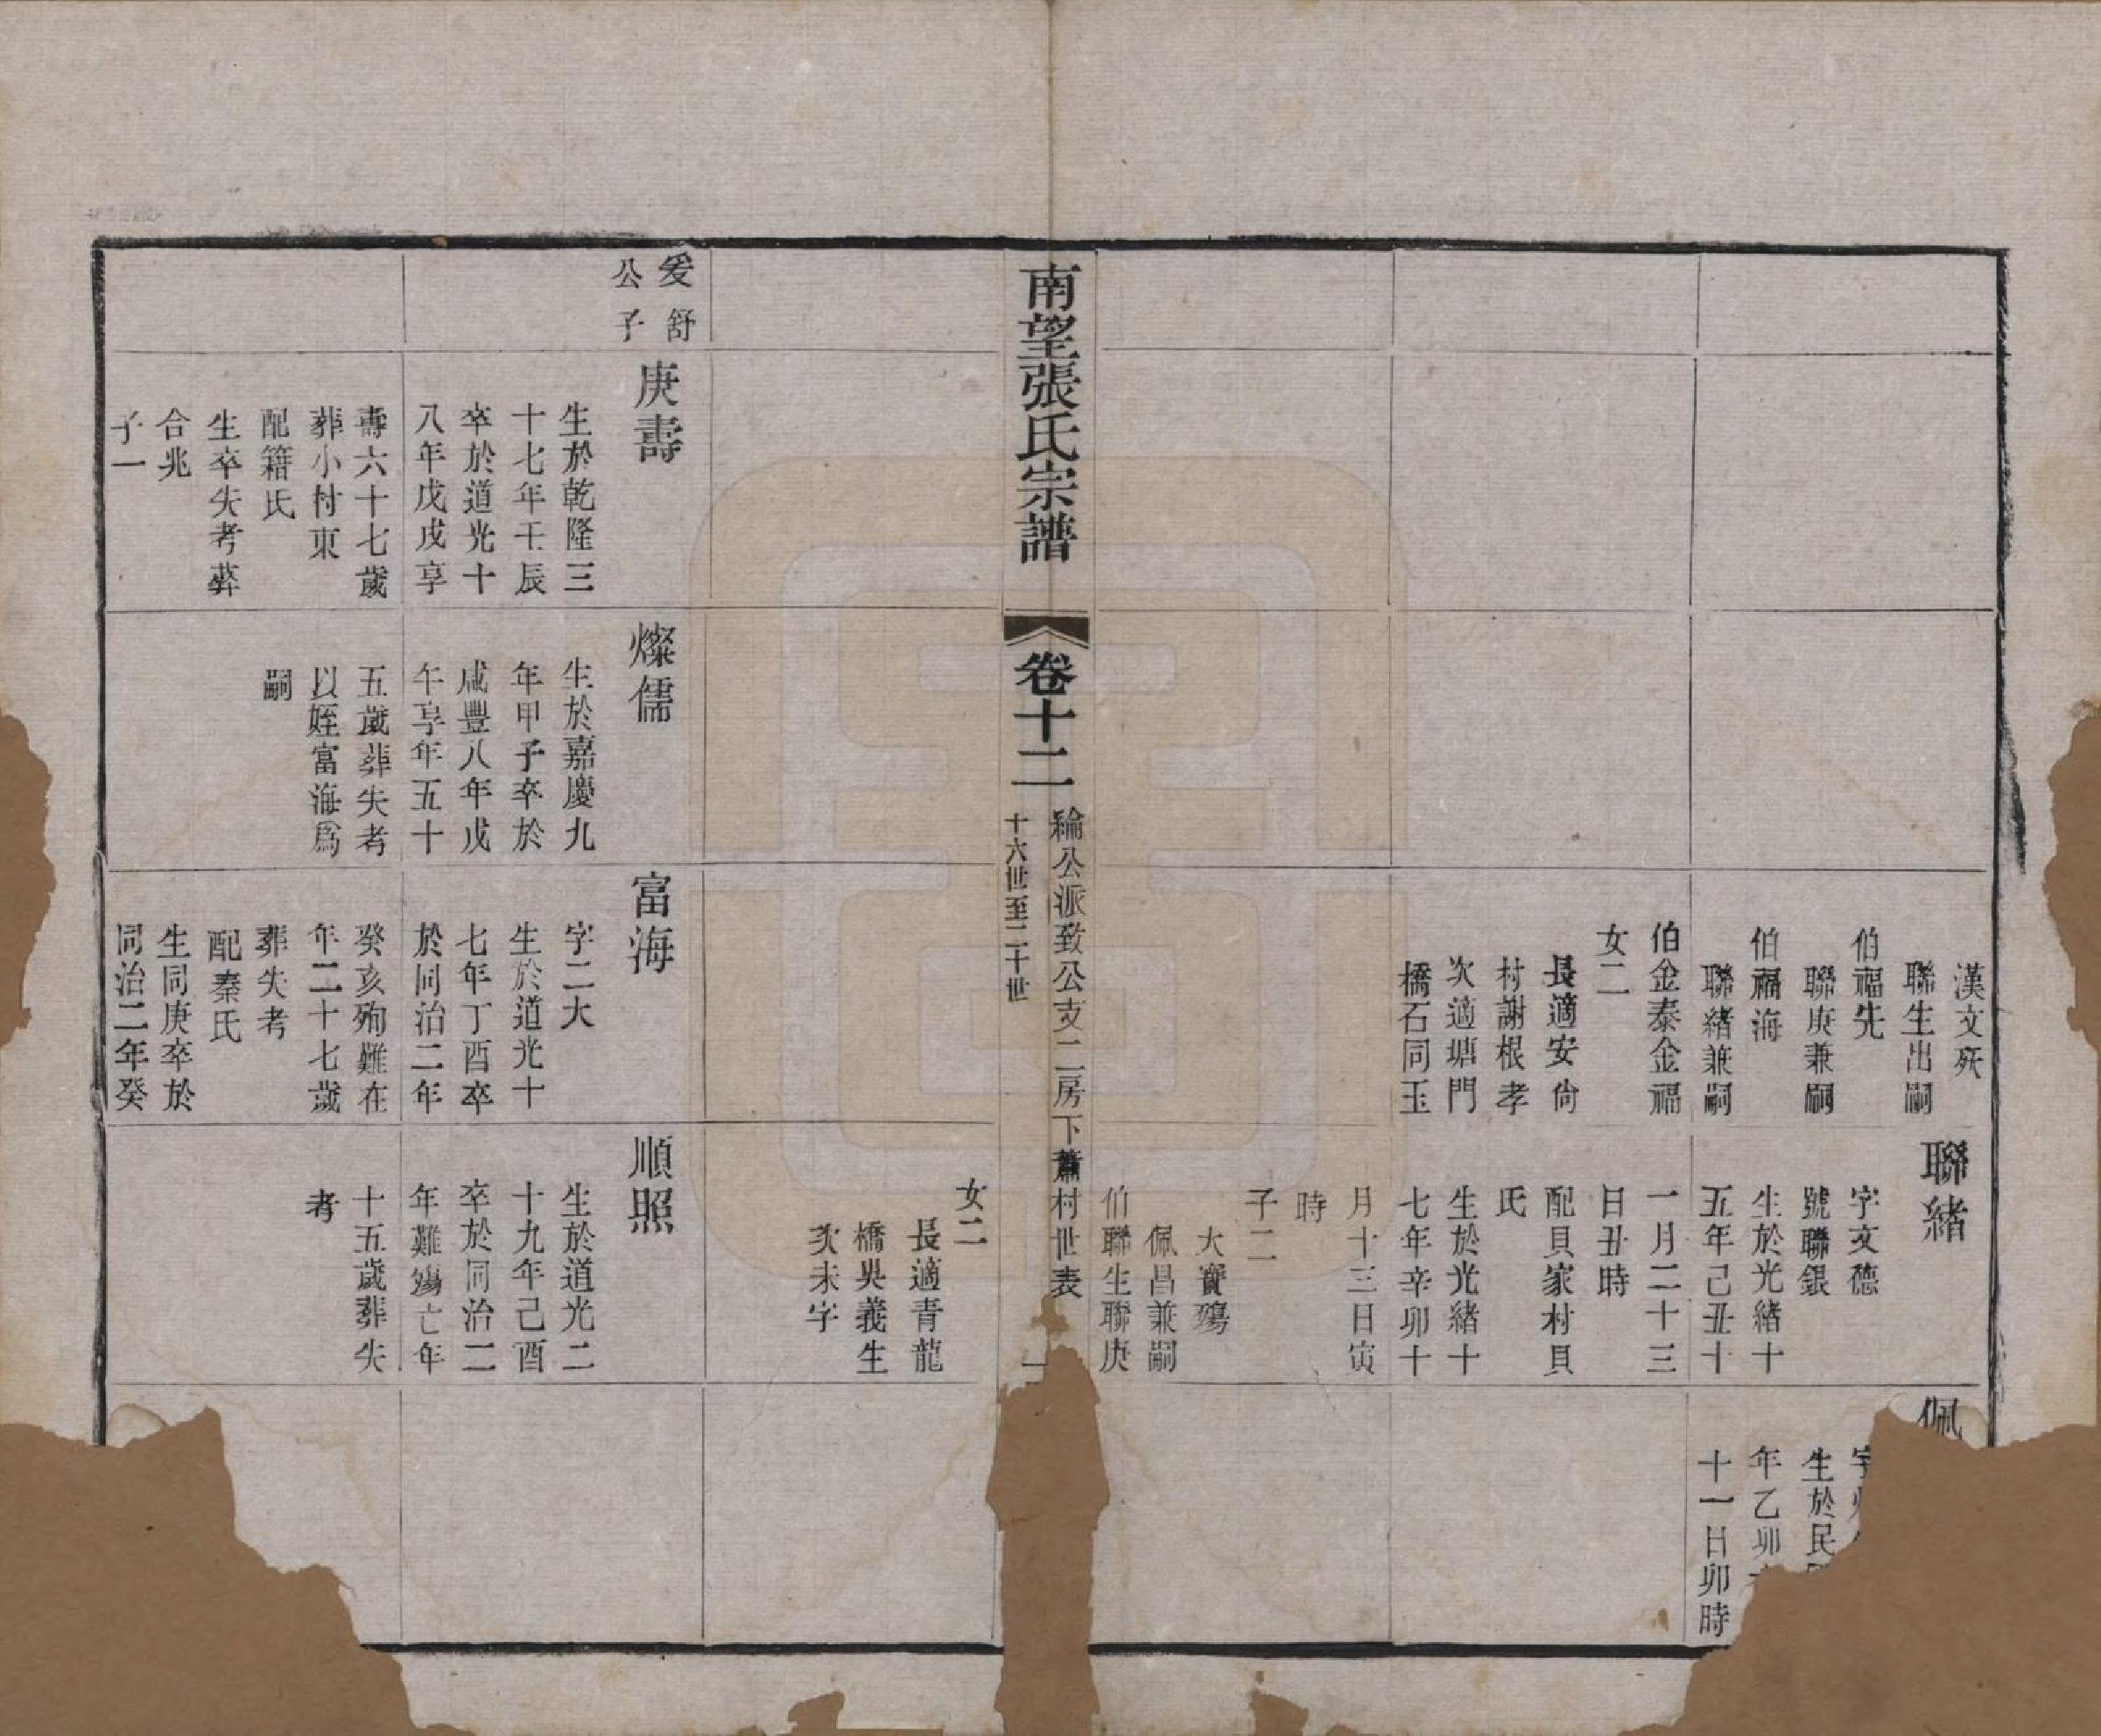 漢文殀
聯生出嗣
伯福先
聯庚兼嗣
伯福海
聯緒兼嗣
伯金泰金福
女二
長適安尙
村謝根孝
次適塘門
橋石同玉
聯緒
字文德
號聯銀
生於光緒十
五年己丑十
一月二十三
日丑時
配貝家村貝
氏
生於光緒十
七年辛卯十
月十三日寅
時
子二
大寶殤
佩昌兼嗣
伯聯生聯庚
佩
字
生於民
年乙卯
十一日卯時
南望張氏宗譜
卷十二
綸公派致公支二房下蕭村世表
十六世至二十世
女二
長適青龍
橋吳義生
次未字
爰舒
公子
庚壽
生於乾隆三
十七年壬辰
卒於道光十
八年戊戌享
壽六十七歲
葬小村東
配籍氏
生卒失考葬
合兆
子一
燦儒
生於嘉慶九
年甲子卒於
咸豐八年戊
午享年五十
五歲葬失考
以姪富海爲
嗣
富海
字二大
生於道光十
七年丁酉卒
於同治二年
癸亥殉難在
年二十七歲
葬失考
配秦氏
生同庚卒於
同治二年癸
順照
生於道光二
十九年己酉
卒於同治二
年難殤亡年
十五歲葬失
考